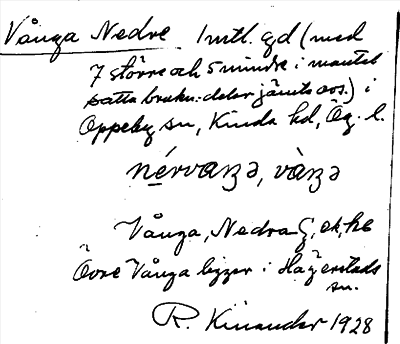 Vånga Nedre 1 mtl. gd (med
7 större och 5 mindre i mantal
satta brukn:delar jämte avs.) i
Oppeby sn, Kinda hd, Ög. l.
nérvaŋə, vàŋə
Vånga, Nedra G, ek, hb
Övre Vånga ligger i Hägerstads
sn.
R. Kinander 1928